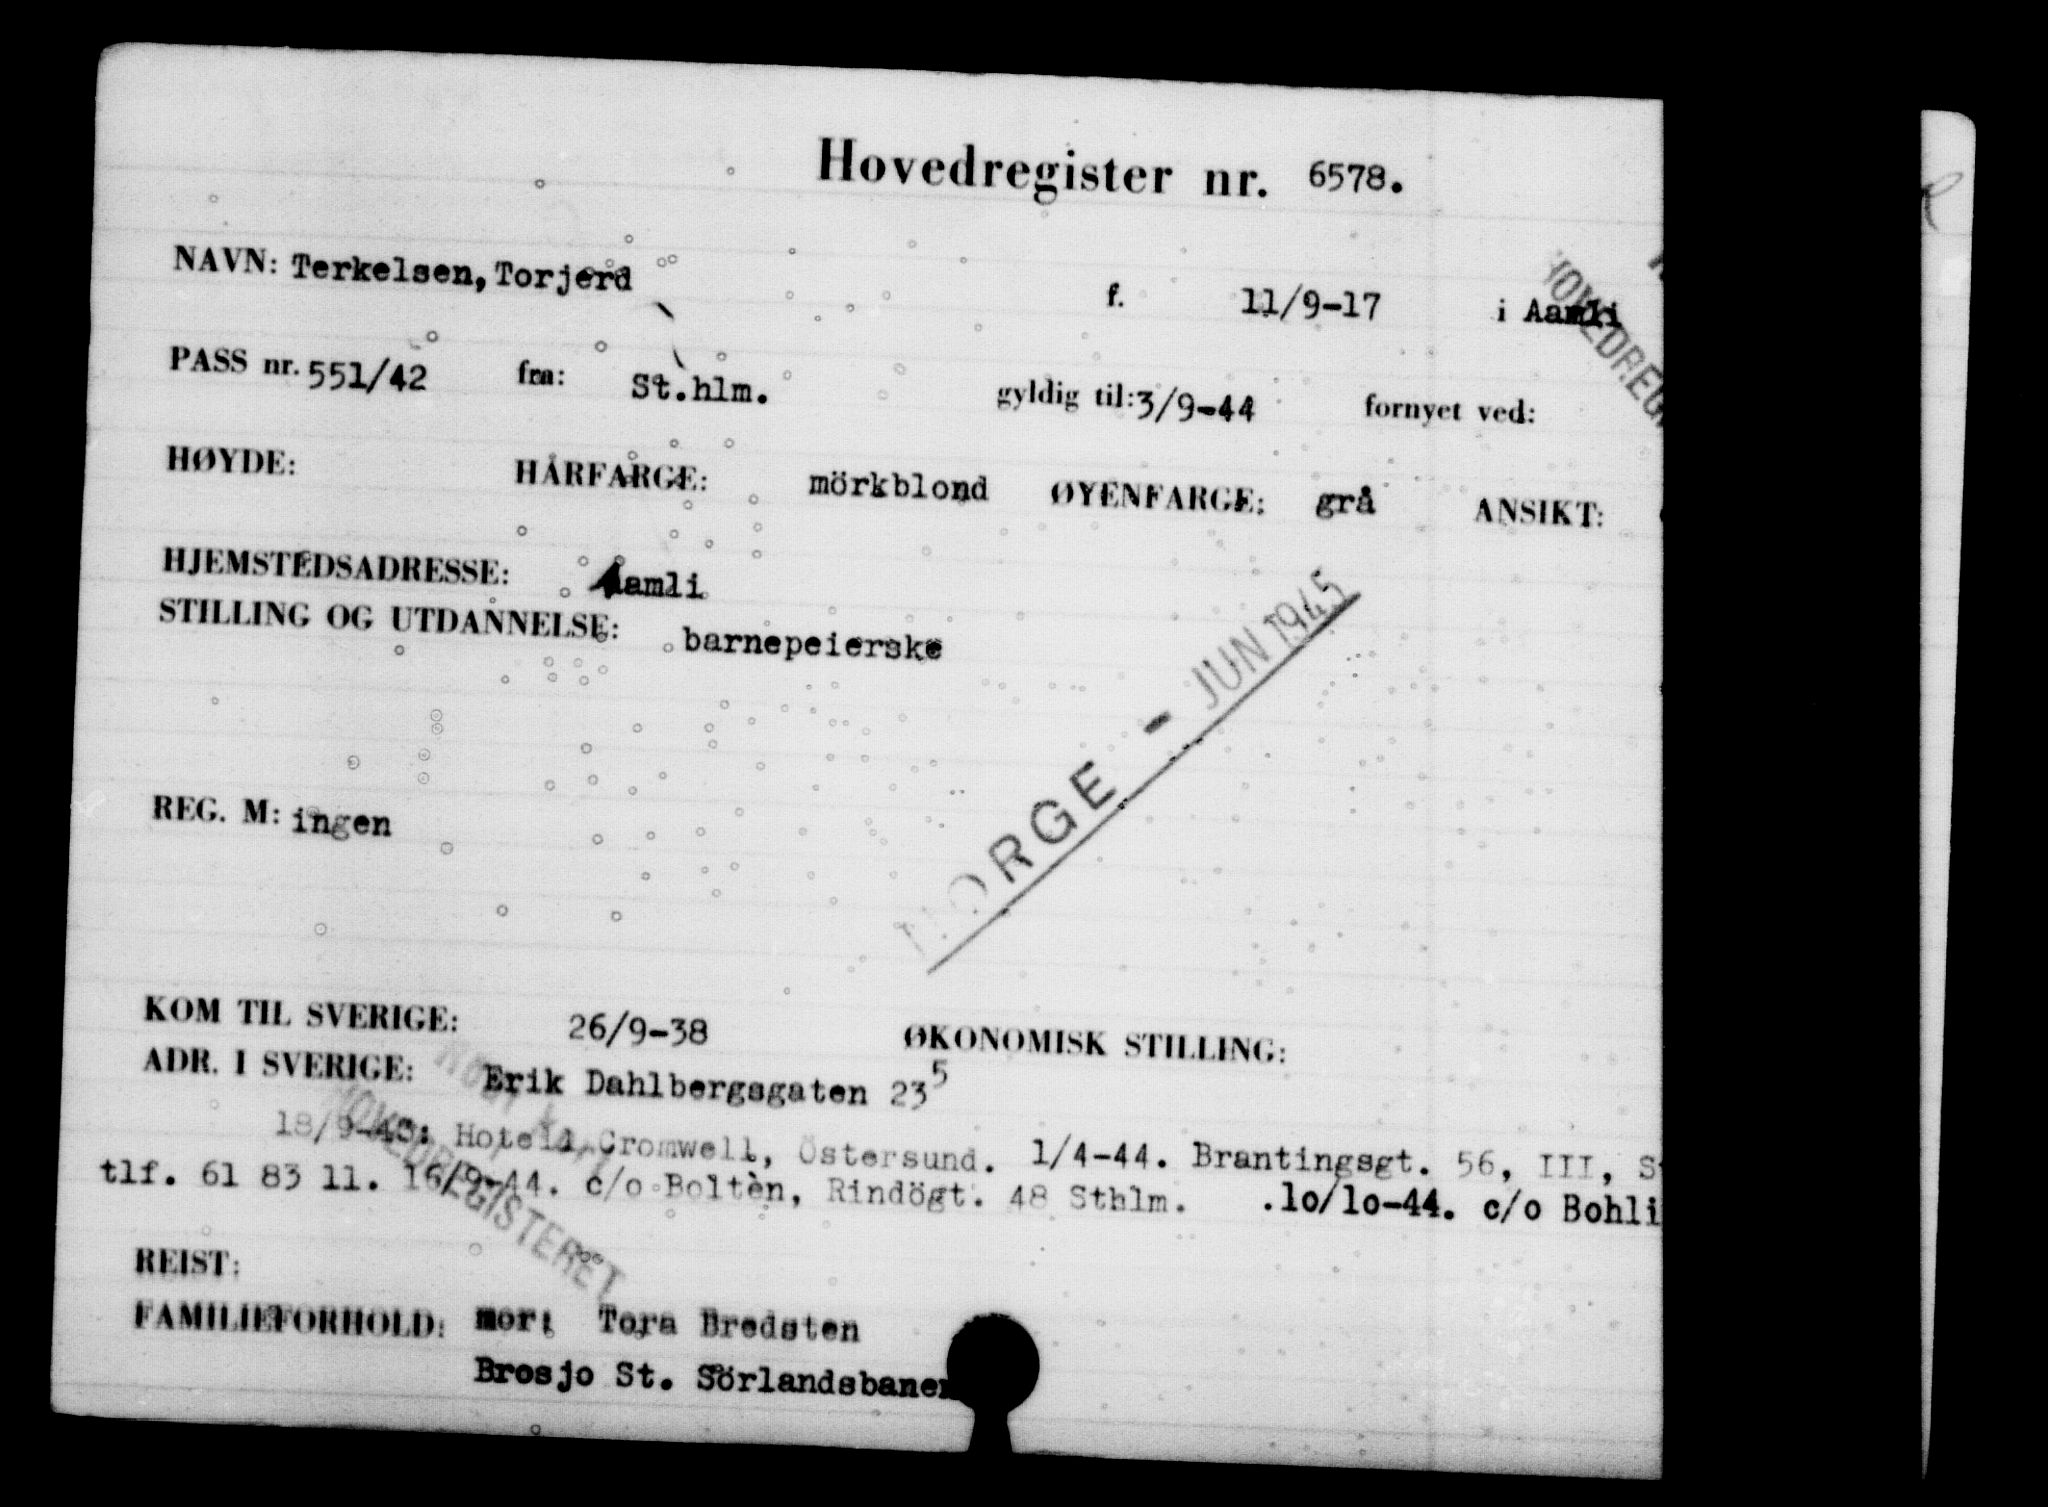 Hovedregister nr. 6578.
NAVN: Terkelsen, Torjerd f. 11/9-17 i Aamli
PASS nr. 551/42 fra: St.hlm. gyldig til: 3/9-44 fornyet ved:
HØYDE: HÅRFARGE: mörkblond ØYENFARGE: grå ANSIKT:
HJEMSTEDSADRESSE: Aamli
STILLING OG UTDANNELSE: barnepeierske
NORGE - JUN 1945
REG. M: ingen
KOM TIL SVERIGE: 26/9-38 ØKONOMISK STILLING:
ADR. I SVERIGE: Erik Dahlbergsgaten 23⁵
18/9-43: Hotell Cromwell, Östersund. 1/4-44. Brantingsgt. 56, III,
tlf. 61 83 11. 16/9-44. c/o Boltèn, Rindögt. 48 Sthlm. .lo/lo-44. c/o Bohli
HOVEDREGISTERET
REIST:
FAMILIEFORHOLD: mor: Tora Bredsten
Brosjo St. Sörlandsbanen